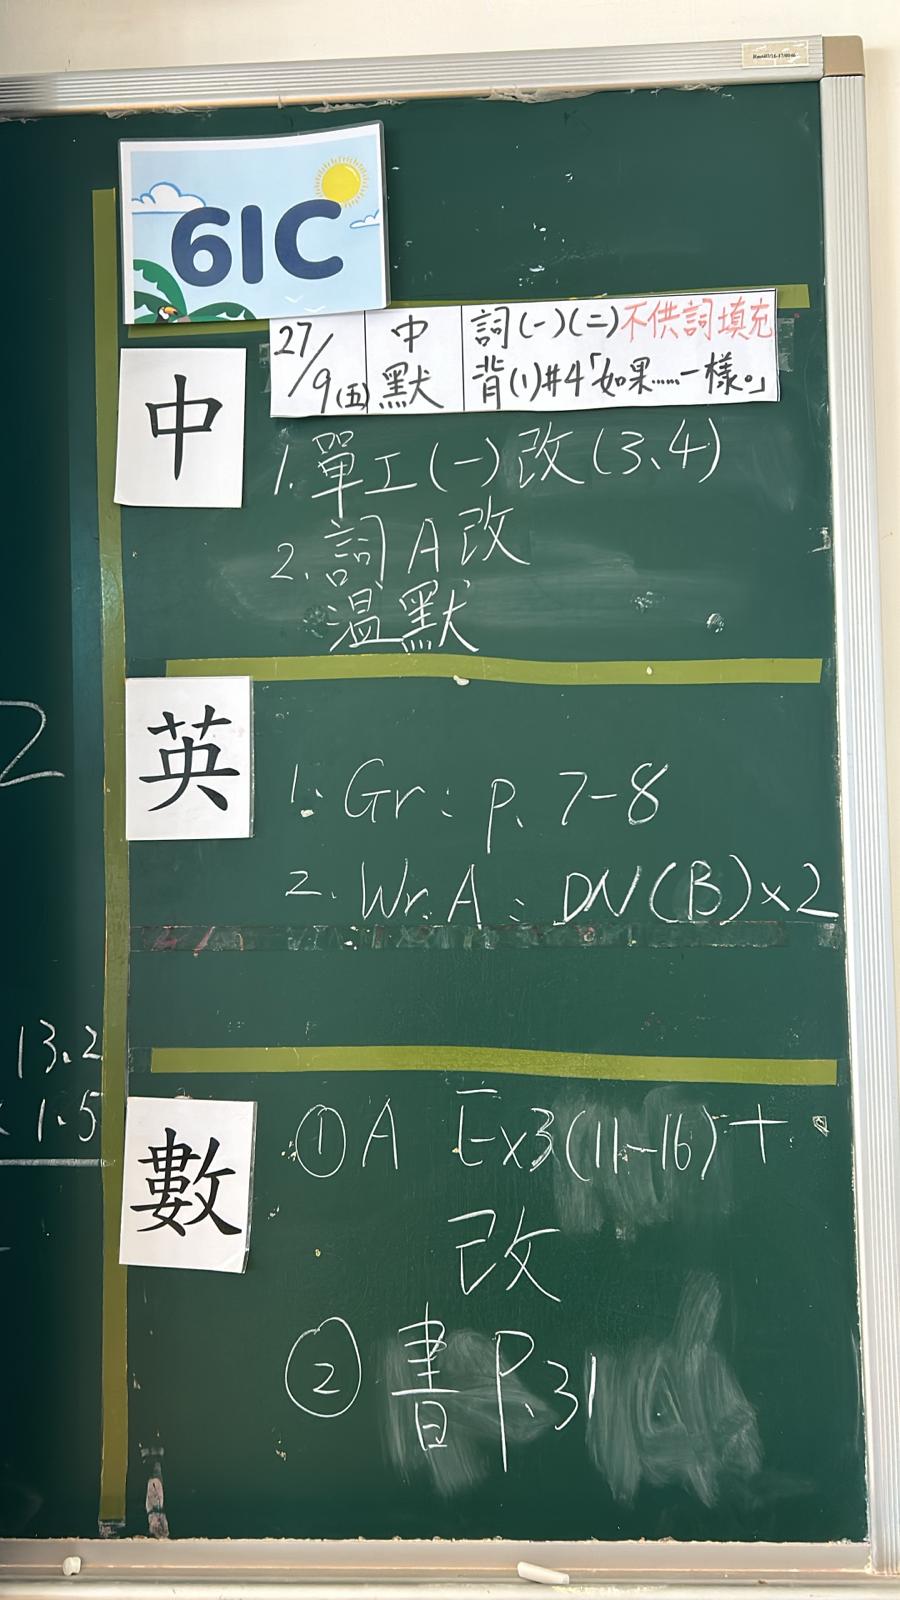 61C
27/9(五) 中默 詞(一)(二)不供詞填充
背(1)#4「如果……一樣。」
中
1. 單工(一)改(3、4)
2. 詞A改
溫默
英
1. Gr: p. 7-8
2. Wr. A: DN(B)x2
2
13.2
x 1.5
數
① A Ex3(11-16)+
改
② 書 P.31